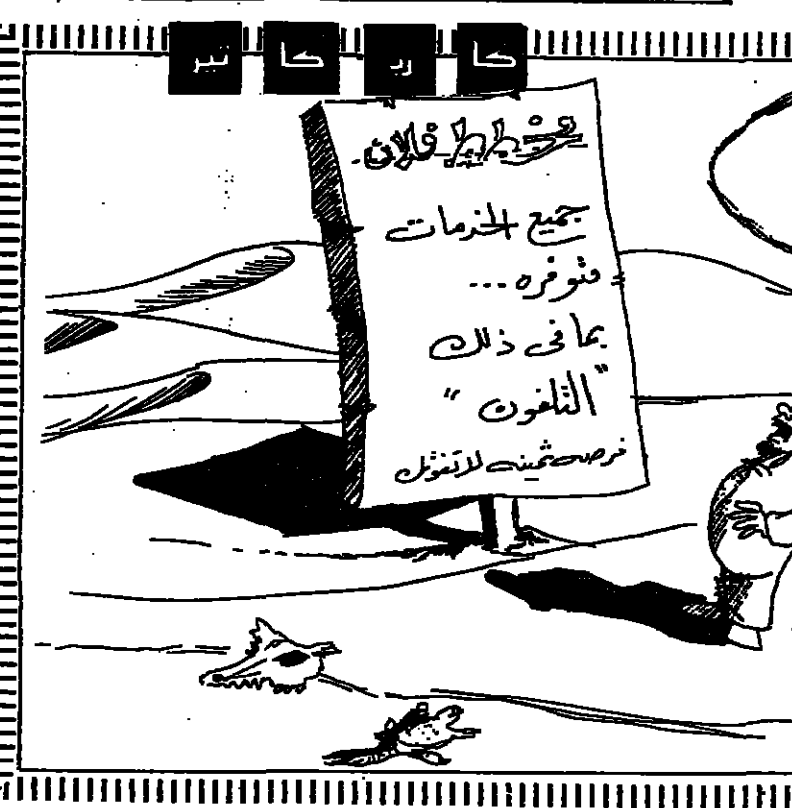 كا ريـ كا تير
مخطط فلان.
جميع الخدمات
متوفره...
بما في ذلك
"التلفون"
فرصه ثمينه لا تفوتك